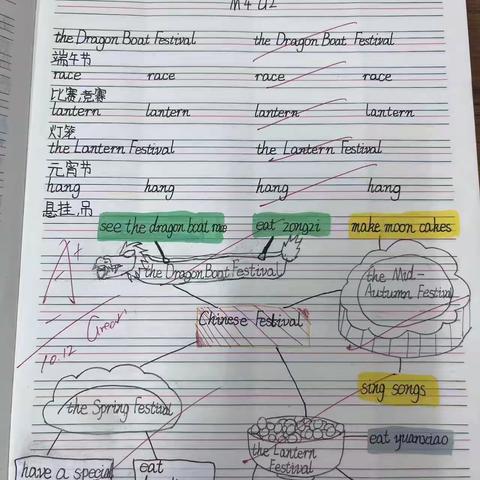 M4U2
the Dragon Boat Festival the Dragon Boat Festival
端午节
race race race race
比赛,竞赛
lantern lantern lantern lantern
灯笼
the Lantern Festival the Lantern Festival
元宵节
hang hang hang hang
悬挂,吊
see the dragon boat race eat zongzi make moon cakes
the Dragon Boat Festival
the Mid-
Autumn Festival
A+
Great!
10.12
Chinese Festival
sing songs
the Spring Festival
eat yuanxiao
the Lantern
Festival
have a special
eat